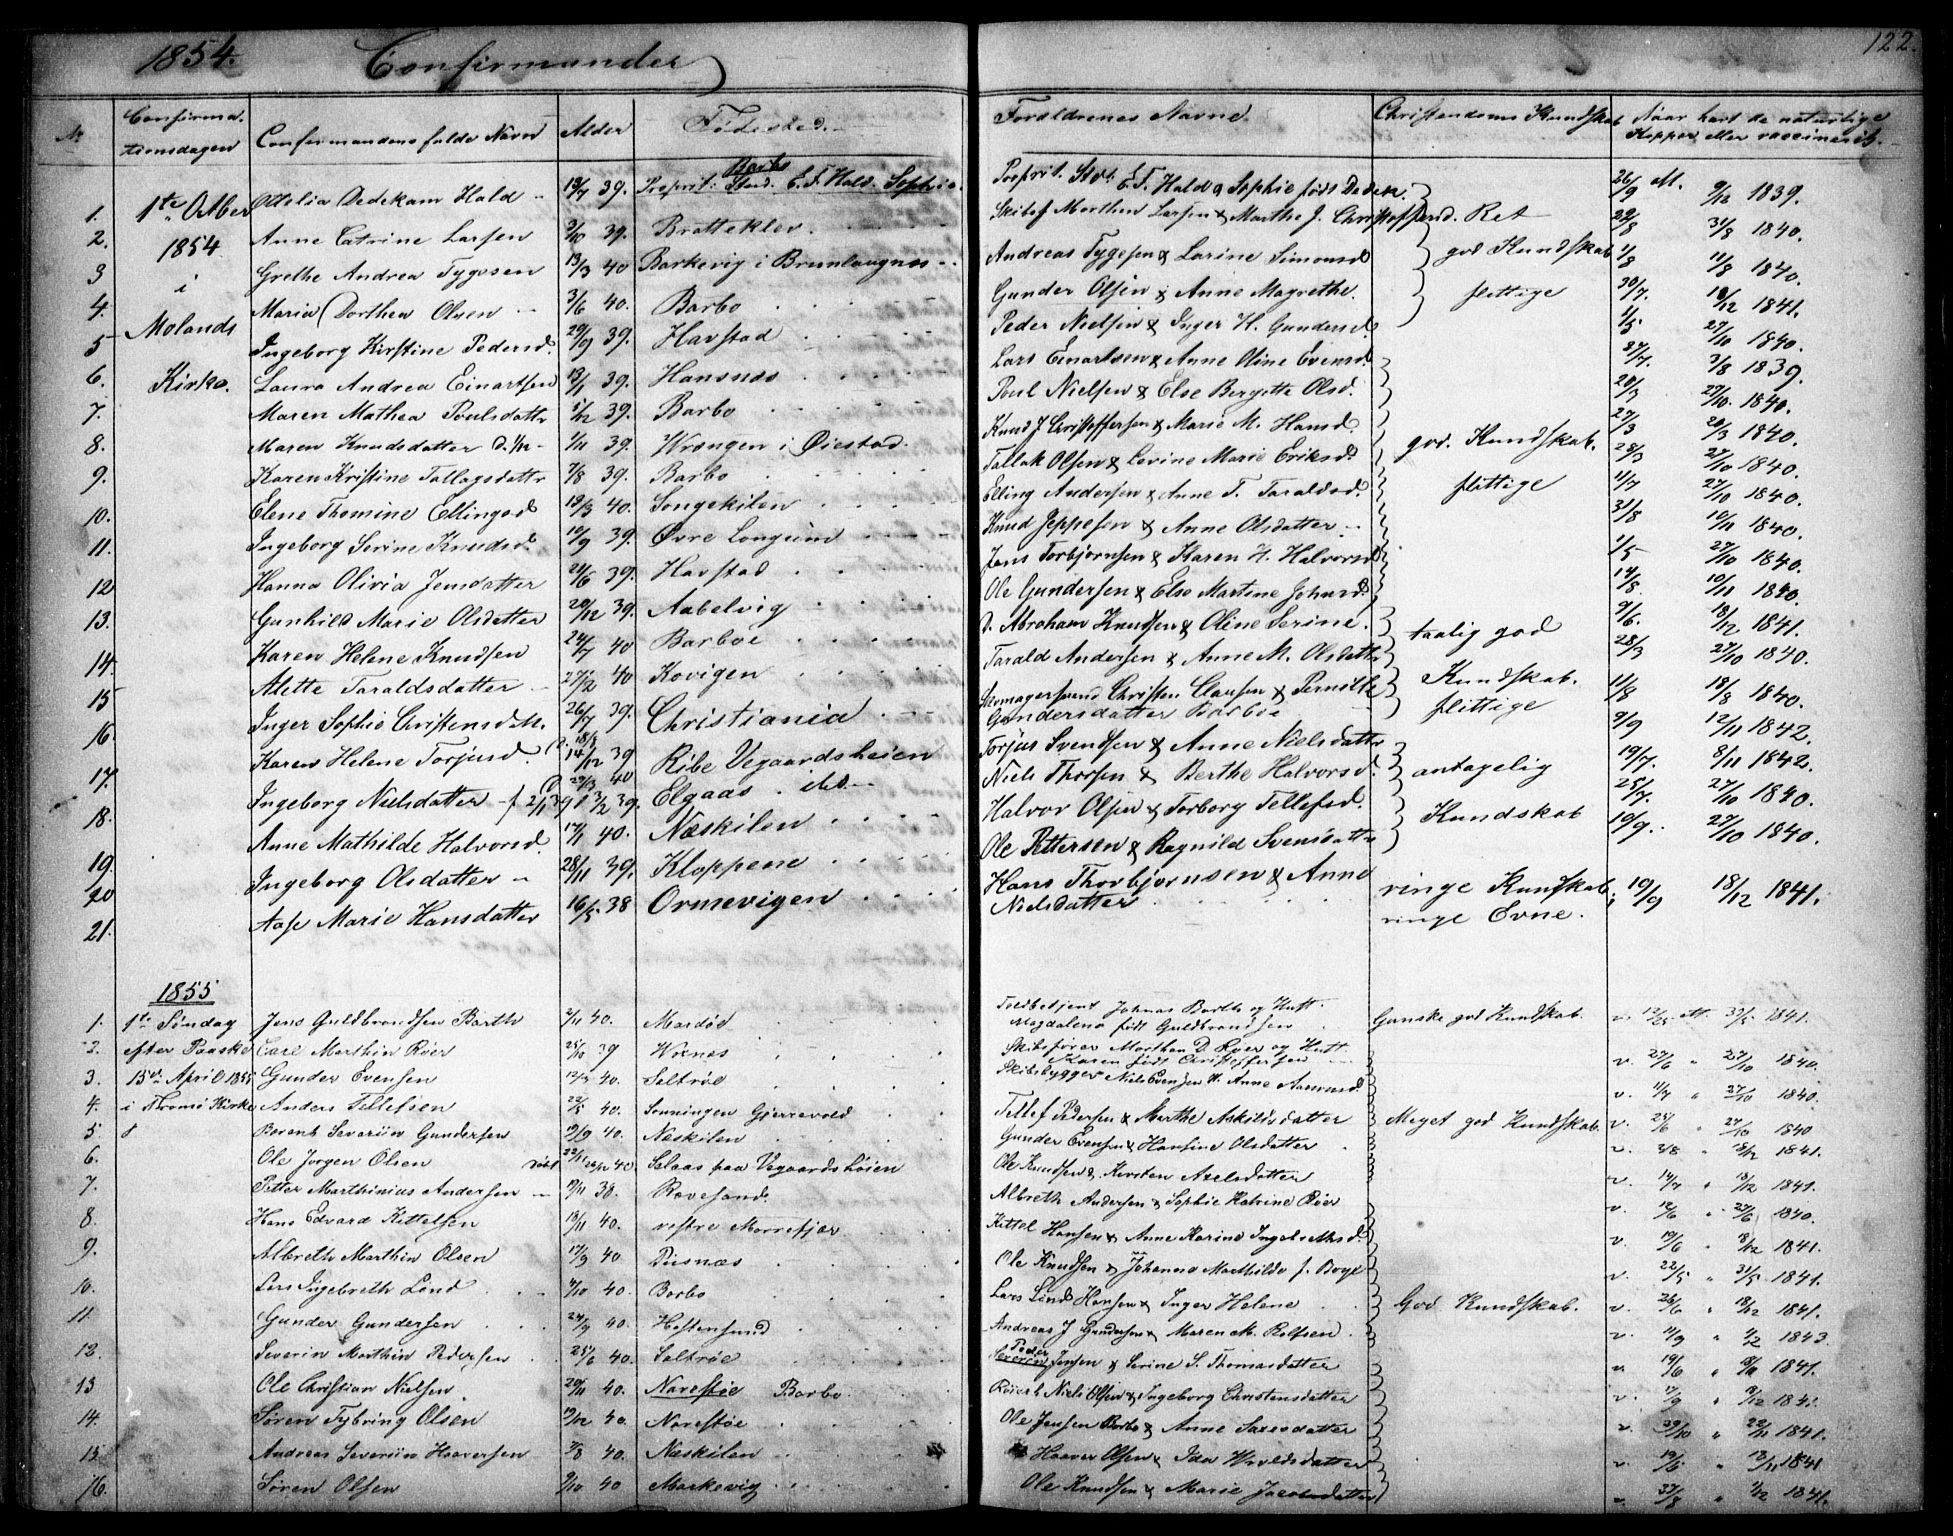 1854. Confirmander 122.
Nr Confirmationsdagen Confirmandens fulde Navn Alder Fødested. Forældrenes Navne. Christendoms Kundskab Naar havt de naturlige Kopper eller vaccineret.
1. 1ste Octber Ottilia Dedekam Hald 39. Proprit: Stud. E. F. Hald. Sophie Barbo Proprit. Stud. E. F. Hald og Sophie født Dedek. 9/12 1839.
2. 1854 Anne Catrine Larsen 39. Bratteklev. Skibsf Morthen Larsen & Marthe J. Christoffersd. Ret 31/8 1840.
3 i Grethe Andrea Tygesen 13/3 40 Barkevig i Brunlaugnæs Andreas Tygesen & Larine Simonsd god Kundskab 11/8 1840.
4. Molands Maria Dorthea Olsen 3/6 40. Barbo Gunder Olsen & Anne Magrethe. flittige 18/12 1841.
5 Ingeborg Kirstine Pedersd. 29/9 39. Havstad Peder Nielsen & Inger H. Gundersd. 27/10 1840.
6. Kirke. Laura Andrea Einartsen 39. Hansnæs Lars Einartsen & Anne Oline Evensd. 3/8 1839.
7. Maren Mathea Poulsdattr 39. Barbo Poul Nielsen & Else Bergitte Olsd. 27/10 1840.
8. Maren Knudsdatter 1/11 39. Wrængen i Øiestad. Knud J Christoffersen & Marie M. Hansd. god. Kundskab. 20/3 1840.
9. Karen Kristine Tallagsdattr 7/8 39. Barbo Tallak Olsen & Sevine Marie Eriksd. 27/10 1840.
10. Elene Thomine Ellingsd 19/3 40. Songekilen Elling Andersen & Anne T. Taraldsd. flittige 27/10 1840.
11. Ingeborg Serine Knudsd. 19/9 39. Øvre Longum Knud Jeppesen & Anne Olsdatter 10/11 1840.
12 Hanna Olivia Jensdatter 24/6 39. Havstad Jens Torbjørnsen & Karen H. Halvorsd 27/10 1840.
13. Gunhild Marie Olsdatter 20/12 39. Aabelvig Ole Gundersen & Else Martine Johnsd 10/11 1840.
14. Karen Helene Knudsen 24/7 40 Barboe Abraham Knudsen & Oline Serine. taalig god 18/12 1841.
15 Alette Taraldsdatter 27/2 40 Kovigen Tarald Andersen & Anne M. Olsdattr Kundskab. 27/10 1840.
16. Inger Sophie Christensdattr. 26/7 39. Christiania Skomagersvend Christen Clausen & Pernille Gundersdatter Barboe flittige 18/8 1840.
17. Karen Helene Torjusd. 14/12 39 Ribe Vegaardsheien Torjus Svendsen & Anne Nielsdattr 12/11 1842.
18. Ingeborg Nielsdatter 39. Elgaas Niels Thorsen & Berthe Halvorsd. antagelig 8/11 1842.
19. Anne Mathilde Halvorsd. 17/1 40. Næskilen Halvor Olsen & Torborg Tellefsd. Kundskab 27/10 1840.
20 Ingeborg Olsdatter 28/11 39. Kloppene Ole Pettersen & Ragnild Svensdattr 27/10 1840.
21. Aase Marie Hansdatter 16/5 38 Ormevigen Hans Thorbjørnsen & Anne Nielsdatter ringe Kundskab, ringe Evne. 19/9 18/12 1841.
1855
1. 1ste Søndag Jens Guldbrandsen Barth 2/11 40. Mærdøe Toldbetjent Johnas Barth og Hutt. Magdalena født Guldbrandsen Ganske god Kundskab. 1841.
2. efter Paaske Carl Marthin Røer 25/10 39 Wrænæs Skibsfører Morthen D. Røer og Hutt. Maren født Christoffersen v. 27/6 27/10 1840.
3. 15de April 1855 Gunder Evensen 12/3 40. Saltrøe Skibsbygger Niels Evensen H. Anne Aanonsd. v. 11/7 27/10 1840.
4. i Tromø Kirke Anders Tellefsen 22/5 40. Sønningen Gjerrevold Tellef Pedersen & Berthe Askildsdatter Meget god Kundskab. v. 25/6 27/10 1840
5 Berent Severiin Gundersen 19/9 40. Næskilen Gunder Evensen & Hansine Olsdatter v. 18/12 1841.
6. Ole Jørgen Olsen 40. Selaas paa Vegaards Heien Ole Knudsen & Kirsten Axelsdatter v. 14/7 18/12 1841.
7. Petter Marthinius Andersen 19/11 38. Rævesand. Albreth Andersen & Sophie Katrine Røer v. 12/6 27/6 1840.
8. Hans Edvard Kittelsen 13/11 40. vestre Morrefjær Kittel Hansen & Anne Karine Ingebrethsd. v. 19/6 18/12 1841.
9. Albreth Marthin Olsen 17/9 40 Piusnæs Ole Knudsen & Johanna Mathilde f. Boye v. 22/5 31/5 1841.
10. Lars Ingebreth Lind 40. Barbo Lars Lind Hansen & Inger Helene God Kundskab. v. 26/6 18/12 1841.
11. Gunder Gundersen 24/9 40. Hestensund Andreas J Gundersen & Maren M. Rolfsen v. 11/9 1/2 1843.
12. Severin Marthin Pedersen 25/6 40. Saltrøe Peder Jensen & Serine S. Thomasdatter v. 19/6 1841.
13 Ole Christian Nielsen 20/11 40. Narestøe Barbo Niels Olsen & Ingeborg Christensdatter v.
14. Søren Tybring Olsen 19/12 40. Narestøe Ole Jensen Barbo & Anne Sarasdatter v. 29/10 22/11 1841.
15. Andreas Severiin Haaversen 7/8 40. Næskilen Haaver Olsen & Ida Wroldsdatter v. 19/6 1841
16. Søren Olsen 9/10 40 Mærkevig Ole Knudsen & Marie Jacobsdatter v. 1841.